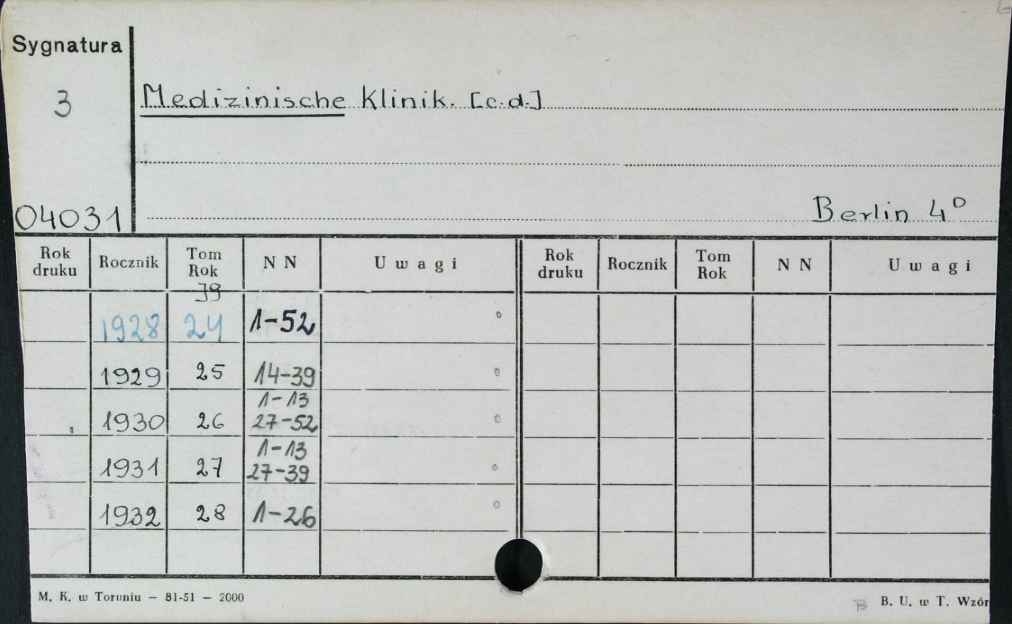 Sygnatura
3
Medizinische Klinik. [c.d.]
04031
Berlin 4°
Rok druku Rocznik Tom Rok NN Uwagi Rok druku Rocznik Tom Rok NN Uwagi
1928 24 1-52
1929 25 14-39
1930 26 1-13 27-52
1931 27 1-13 27-39
1932 28 1-26
M. K. w Toruniu — 81-51 — 2000
B. U. w T. Wzór